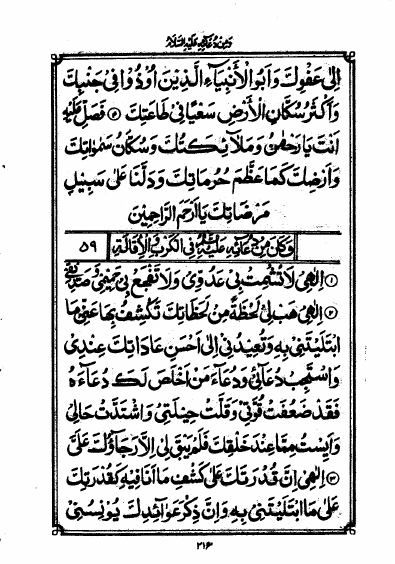 من دعائه عليه السلام
اِلٰى عَفْوِكَ وَاَبُو الْاَنْبِيَاءِ الَّذِينَ اُوْذُوْا فِىْ جَنْبِكَ
وَاَكْثَرُ سُكَّانِ الْاَرْضِ سَعْيًا فِىْ طَاعَتِكَ ⑤ فَصَلِّ عَلَيْهِ
اَنْتَ يَا رَحْمٰنُ وَمَلَآئِكَتُكَ وَسُكَّانُ سَمٰوَاتِكَ
وَاَرْضِكَ كَمَا عَظَّمَ حُرُمَاتِكَ وَدَلَّنَا عَلٰى سَبِيْلِ
مَرْضَاتِكَ يَا اَرْحَمَ الرَّاحِمِيْنَ
وَكَانَ مِنْ دُعَائِهِ عَلَيْهِ السَّلَامُ فِى الْكَرْبِ وَالْاِقَالَةِ ٥٩
① اِلٰهِىْ لَا تُشْمِتْ بِىْ عَدُوِّىْ وَلَا تَفْجَعْ بِىْ حَمِيْمِىْ وَصَدِيْقِىْ
② اِلٰهِىْ هَبْ لِىْ لَحْظَةً مِنْ لَحَظَاتِكَ تَكْشِفُ بِهَا عَنِّىْ مَا
ابْتَلَيْتَنِىْ بِهِ وَتُعِيْدُنِىْ اِلٰى اَحْسَنِ عَادَاتِكَ عِنْدِىْ
وَاسْتَجِبْ دُعَآئِىْ وَدُعَآءَ مَنْ اَخْلَصَ لَكَ دُعَاءَهُ
فَقَدْ ضَعُفَتْ قُوَّتِىْ وَقَلَّتْ حِيْلَتِىْ وَاشْتَدَّتْ حَالِىْ
وَاَيِسْتُ مِمَّا عِنْدَ خَلْقِكَ فَلَمْ يَبْقَ لِىْ اِلَّا رَجَآؤُكَ عَلَىَّ
③ اِلٰهِىْ اِنَّ قُدْرَتَكَ عَلٰى كَشْفِ مَا اَنَا فِيْهِ كَقُدْرَتِكَ
عَلٰى مَا ابْتَلَيْتَنِىْ بِهِ وَاِنَّ ذِكْرَ عَوَآئِدِكَ يُوْنِسُنِىْ
٢١٦